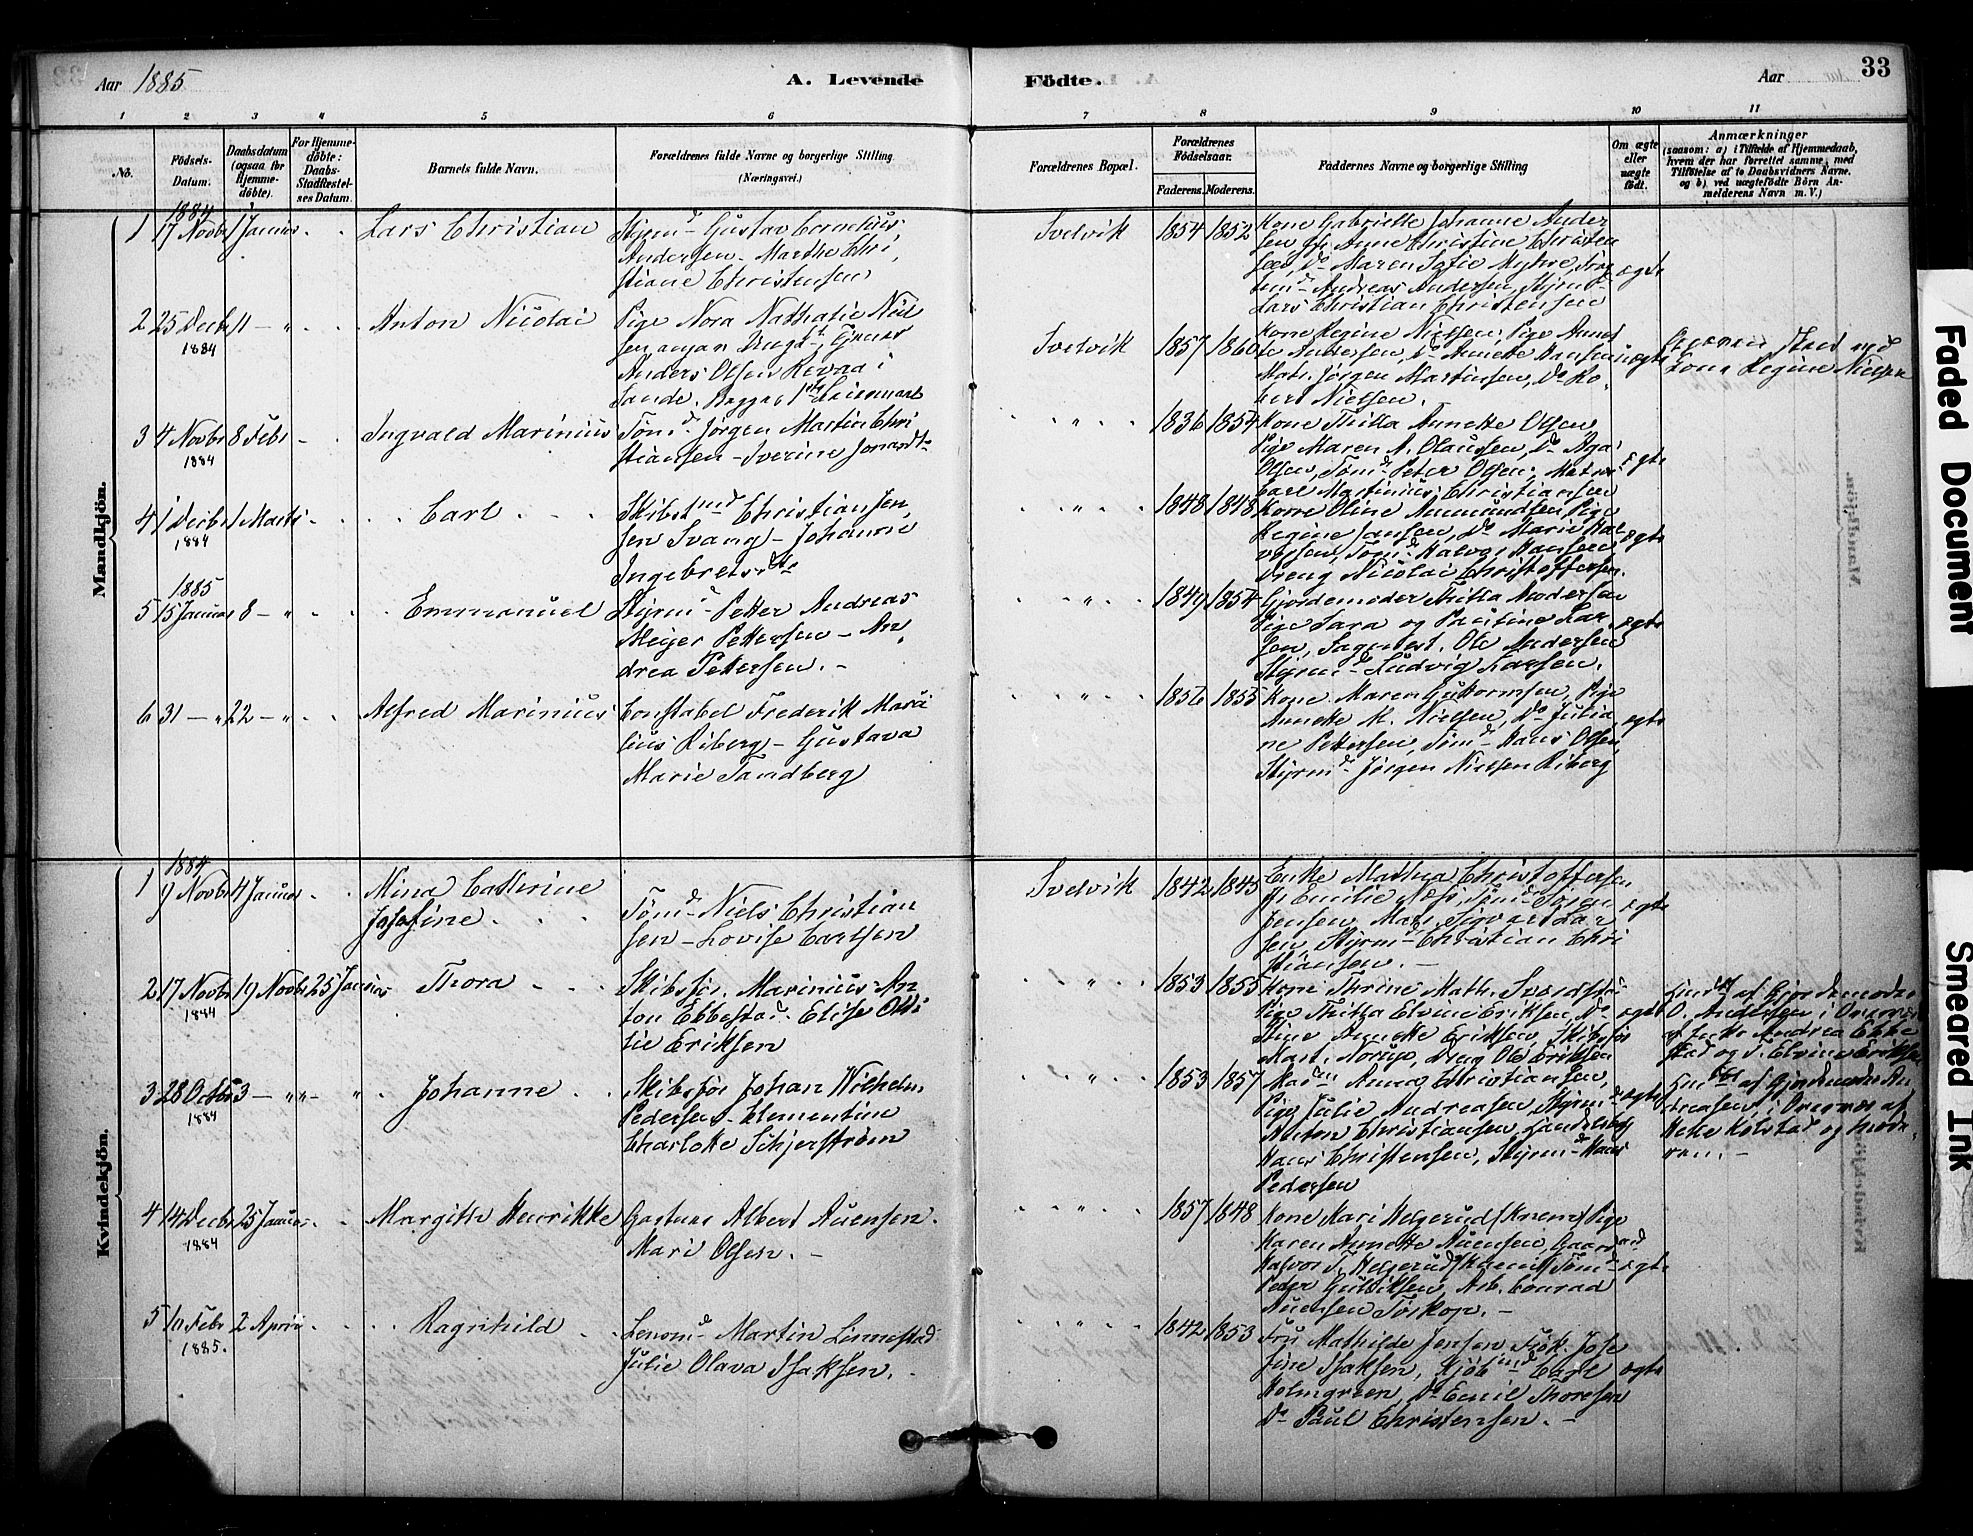 Aar 1885
A. Levende
Födte.
Aar
33
1 2 3 4 5 6 7 8 9 10 11
No.
Födsels-Datum.
Daabsdatum (ogsaa for Hjemme-döbte).
For Hjemme-döbte: Daabs-Stadfæstel-ses Datum.
Barnets fulde Navn.
Forældrenes fulde Navne og borgerlige Stilling (Næringsvei.)
Forældrenes Bopæl.
Forældrenes Födselsaar.
Faderens. Moderens.
Faddernes Navne og borgerlige Stilling
Om ægte eller uægte födt.
Anmærkninger
(saasom: a) i Tilfælde af Hjemmedaab, hvem der har forrettet samme, med Tilföielse af to Daabsvidners Navne, og b) ved uægtefödte Börn An-melderens Navn m. V.)
Mandkjön.
1884
1 17 Novbr 1 Januar
Lars Christian
Styrmd Gustav Cornelius
Andersen - Marthe Chri
stiane Christensen
Svelvik
1854 1852
Kone Gabrielle Johanne Ander
sen, Anne Christine Christen
sen, Do Maren Sofie Myhre,
Andreas Andersen, Styrmd
Lars Christian Christensen
ægte
2 25 Decbr 11 - "
1884
Anton Nicolai
Pige Nora Nathalie Niel
sen
Anders Olsen Revaa i
Sande. Begges 1ste Leiermaal
Svelvik
1857 1860
Kone Regine Nielsen, Pige
Andersen, Do Annette Hansen
Matr. Jörgen Martinsen, Do Ro
bert Nielsen.
uægte
Kone Regine Nielsen
3 4 Novbr 8 Febr
1884
Ingvald Marinius
Tömd Jörgen Martin Chri
stiansen - Severine
"
1836 1854
Kone Thilla Annette Olsen
Pige Maren A. Olausen, Do
Olsen, Tömd Peter Olsen, Matr
Carl Martinius Christiansen
ægte
4 1 Decbr 1 Marts
1884
Carl
Skibstmd Christian Jen
sen Svang - Johanne
Ingebretsdtr
"
1848 1848
Kone Oline Amundsen, Pige
Regine Jansen, Do Marie Hal
vorsen, Tömd Halvor Hansen
Dreng Nicolai Christoffersen.
ægte
1885
5 15 Januar 8 - "
Emmanuel
Styrmd Petter Andreas
Meyer Pettersen - An
drea Pettersen. -
"
1849 1854
Gjordemoder Thilla Andersen
Pige Sara og Pauline Lar
sen, Ole Andersen
Styrmd Ludvig Larsen.
ægte
6 31 - " 22 - "
Alfred Marinius
Constabel Frederik Mari
lius Riberg - Gustava
Marie Tandberg
"
1856 1855
Kone Maren Guttormsen, Pige
Annette M. Nielsen, Do Julia
ne Pettersen, Tömd Hans Olsen
Styrmd Jörgen Nielsen Riberg
ægte
Kvindekjön.
1884
1 9 Novbr 4 Januar
Nina Cathrine
Josefine
Tömd Niels Christian
sen - Lovise Carlsen
Svelvik
1842 1845
Enke Mathea Christoffersen
Emilie Næss, Tömd Sören
Jensen, Matr. Sigvart Lar
sen, Styrmd Christian Chri
stiansen. -
ægte
2 17 Novbr 19 Novbr 25 Januar
1884
Thora
Skibsför. Marinius An
ton Ebbestad - Elise Otti
lie Eriksen
"
1853 1855
Kone Thrine Math.
Pige Thilla Elvine Eriksen, Do
Stine Annette Eriksen, Skibsför
Mart. Norup, Dreng Ole Eriksen
ægte
af Gjordemoder
O. Andersen i
af Enke Andrea Ebbe
stad og F. Elvine Eriksen
3 28 Octbr 3 - " " - "
1884
Johanne
Skibsför Johan Wilhelm
Pedersen - Clementine
Charlotte Schjerström
"
1853 1857
Madm Anna Christiansen,
Pige Julie Andreasen, Styrmd
Anton Christiansen, Handelsbet
Hans Christensen, Styrmd Hans
Pedersen
ægte
af Gjordemoder An
dreasen i Overvær af
Kolstad og mode
ren. -
4 14 Decbr 25 Januar
1884
Margitte Henrikke
Albert Auensen.
Mari Olsen. -
"
1857 1848
Kone Mari Helgerud (Knem) Pige
Karen Annette Auensen, Gaardmd
Halvor T. Helgerud (Knem) Tömd
Peder Gulliksen, Arb. Conrad
Auensen Törkop. -
ægte
5 10 Febr 2 April
1885.
Ragnhild
Lensmd Martin Linnestad
Julie Olava Isaksen.
"
1842 1853
Fru Mathilde Jensen, Frök. Jose
fine Isaksen, Kjöbmd Carl
Holmgreen, Do Emil Thoresen
Do Paul Christensen. -
ægte
Faded Document
Smeared Ink